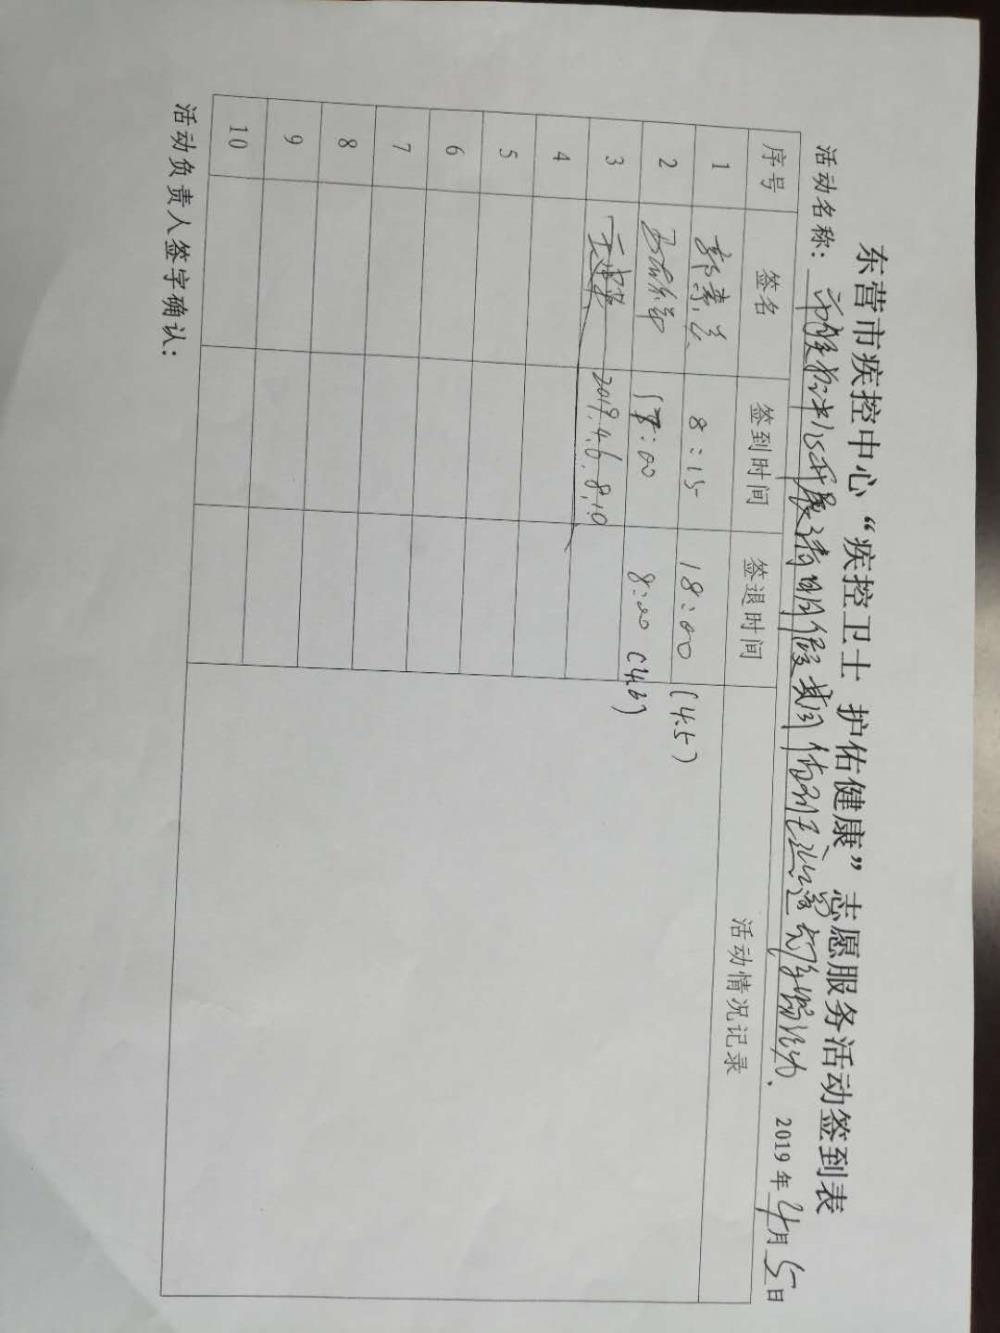 东营市疾控中心“疾控卫士 护佑健康”志愿服务活动签到表
活动名称：开展清明假期间 活动. 2019年4月5日
序号 签名 签到时间 签退时间 活动情况记录
1 8:15 18:00 (4.5)
2 :00 8:00 (4.6)
3 2019.4.6.8:10
4
5
6
7
8
9
10
活动负责人签字确认：